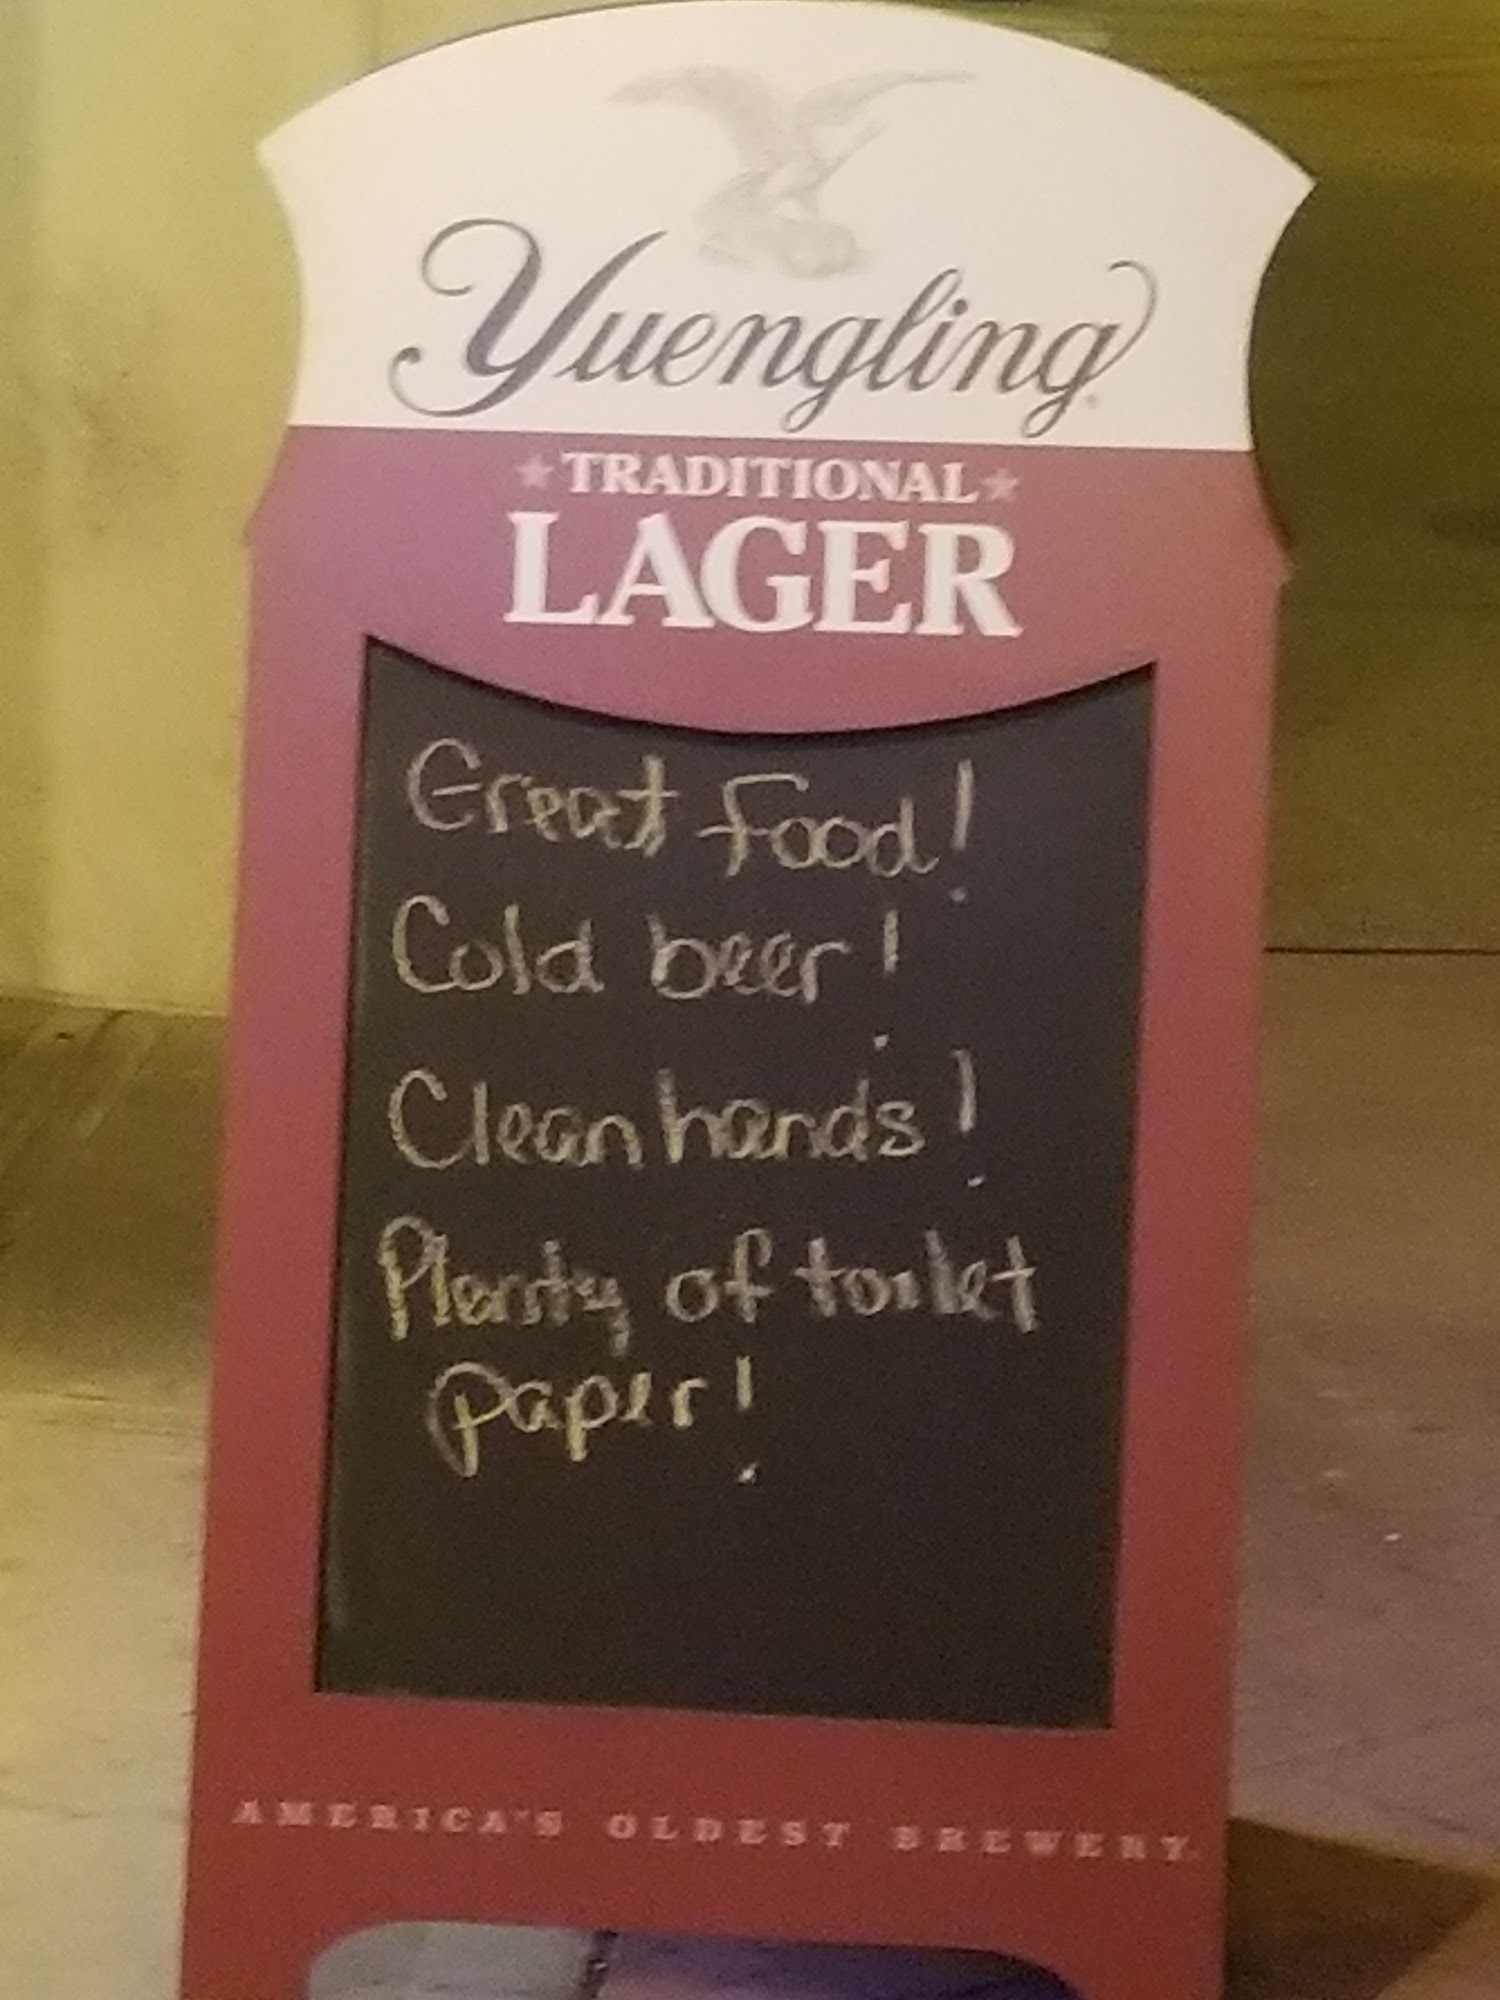 Yuengling
TRADITIONAL
LAGER
Great food!
Cold beer!
Clean hands!
Plenty of toilet
paper!
AMERICA'S OLDEST BREWERY.